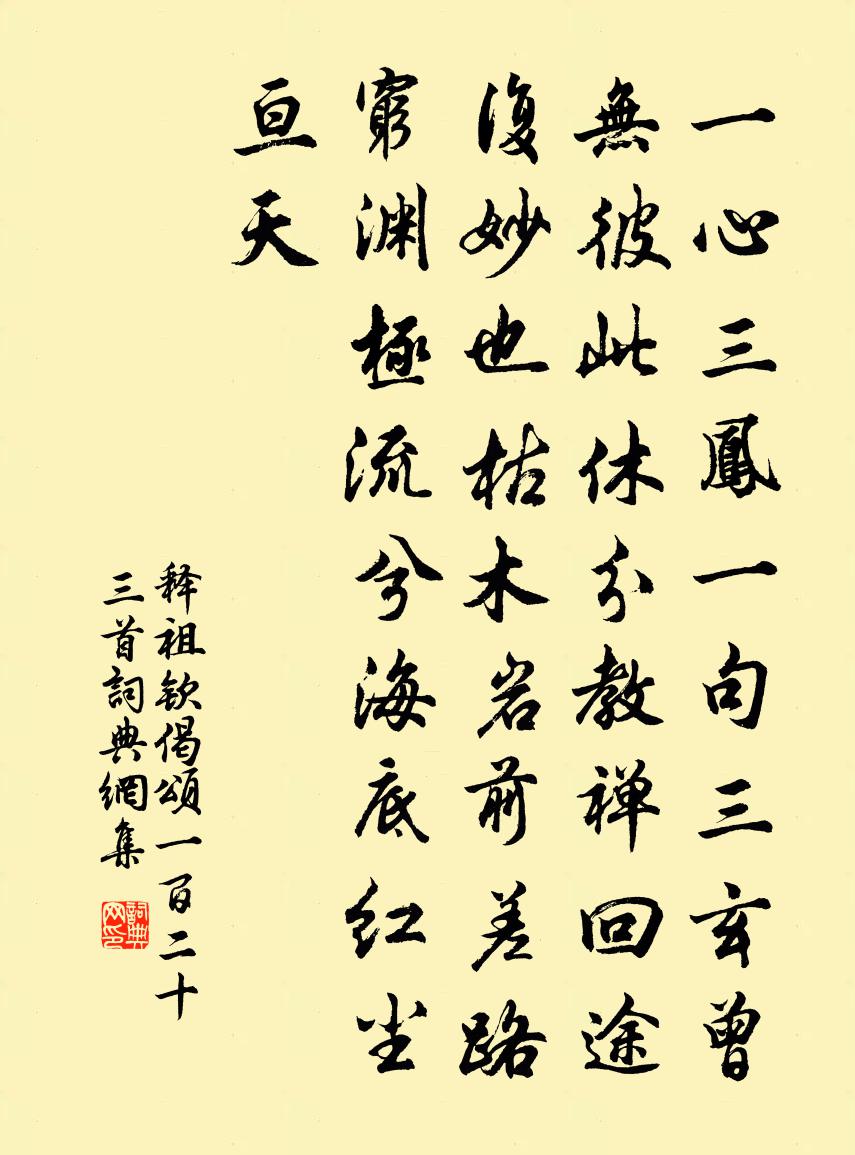 一心三鳳一句三玄曾
無彼此休分教禅回途
復妙也枯木岩前差路
窮渊極流兮海底红尘
亘天
释祖钦偈頌一百二十
三首詞典網集
詞典
网印